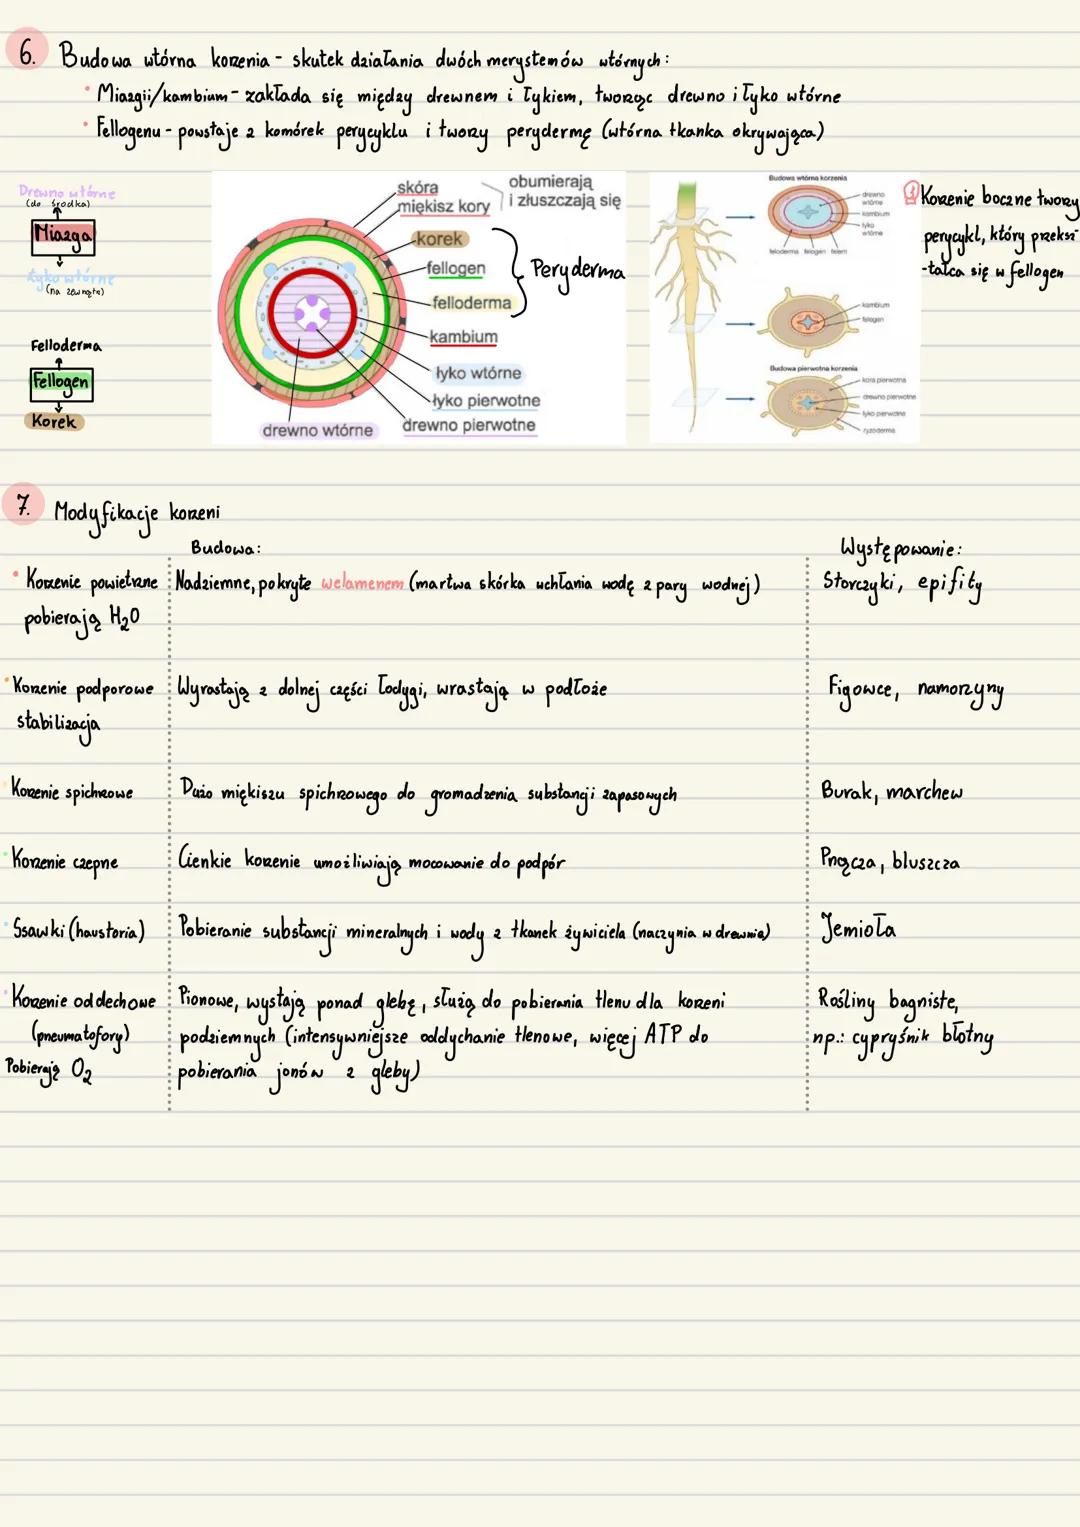 6. Budowa wtórna korzenia - skutek działania dwóch merystemów wtórnych:
• Miazgii/kambium - zakłada się między drewnem i łykiem, tworząc drewno i łyko wtórne
• Fellogenu - powstaje z komórek perycyklu i tworzy perydermę (wtórna tkanka okrywająca)
Drewno wtórne
(do środka)
Miazga
Łyko wtórne
(na zewnątrz)
Felloderma
Fellogen
Korek
skóra
miękisz kory
obumierają
i złuszczają się
korek
fellogen
felloderma
Peryderma
kambium
łyko wtórne
łyko pierwotne
drewno pierwotne
drewno wtórne
Budowa wtórna korzenia
drewno
wtórne
kambium
łyko
wtórne
feloderma felogen felem
kambium
felogen
Budowa pierwotna korzenia
kora pierwotna
drewno pierwotne
łyko pierwotne
ryzoderma
Korzenie boczne tworzy
perycykl, który przeksz-
-tałca się w fellogen
7. Modyfikacje korzeni
Budowa:
Występowanie:
• Korzenie powietrzne Nadziemne, pokryte welamenem (martwa skórka uchłania wodę z pary wodnej) Storczyki, epifity
pobierają H₂O
• Korzenie podporowe Wyrastają z dolnej części łodygi, wrastają w podłoże Figowce, namorzyny
stabilizacja
• Korzenie spichrzowe Dużo miękiszu spichrzowego do gromadzenia substancji zapasowych Burak, marchew
• Korzenie czepne Cienkie korzenie umożliwiają mocowanie do podpór Pnącza, bluszcza
• Ssawki (haustoria) Pobieranie substancji mineralnych i wody z tkanek żywiciela (naczynia w drewnie) Jemioła
• Korzenie oddechowe Pionowe, wystają ponad glebę, służą do pobierania tlenu dla korzeni Rośliny bagniste,
(pneumatofory) podziemnych (intensywniejsze oddychanie tlenowe, więcej ATP do np.: cypryśnik błotny
Pobierają O₂ pobierania jonów z gleby)